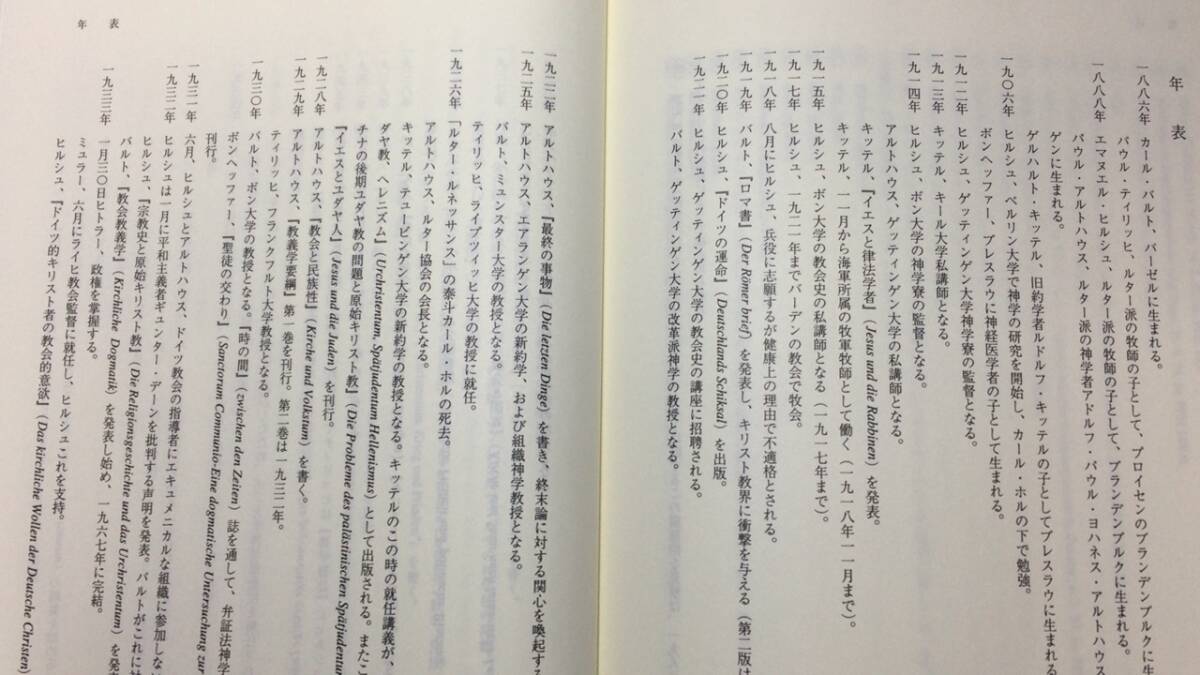 年表
一八八六年 カール・バルト、バーゼルに生まれる。
パウル・ティリッヒ、ルター派の牧師の子として、プロイセンのブランデンブルクに生
まれる。
一八八八年 エマヌエル・ヒルシュ、ルター派の牧師の子として、ブランデンブルクに生まれる。
パウル・アルトハウス、ルター派の神学者アドルフ・パウル・ヨハネス・アルトハウス
ゲンに生まれる。
ゲルハルト・キッテル、旧約学者ルドルフ・キッテルの子としてブレスラウに生まれる
一九〇六年 ヒルシュ、ベルリン大学で神学の研究を開始し、カール・ホルの下で勉強。
ボンヘッファー、ブレスラウに神経医学者の子として生まれる。
一九一二年 ヒルシュ、ゲッティンゲン大学神学寮の監督となる。
一九一三年 キッテル、キール大学私講師となる。
一九一四年 ヒルシュ、ボン大学の神学寮の監督となる。
アルトハウス、ゲッティンゲン大学の私講師となる。
キッテル、『イエスと律法学者』(Jesus und die Rabbinen)を発表。
キッテル、一一月から海軍所属の牧軍牧師として働く(一九一八年一一月まで)。
一九一五年 ヒルシュ、ボン大学の教会史の私講師となる(一九一七年まで)。
一九一七年 ヒルシュ、一九二一年までバーデンの教会で牧会。
一九一八年 八月にヒルシュ、兵役に志願するが健康上の理由で不適格とされる。
一九一九年 バルト、『ロマ書』(Der Römer brief)を発表し、キリスト教界に衝撃を与える(第二版は
一九二〇年 ヒルシュ、『ドイツの運命』(Deutschlands Schiksal)を出版。
一九二一年 ヒルシュ、ゲッティンゲン大学の教会史の講座に招聘される。
バルト、ゲッティンゲン大学の改革派神学の教授となる。
一九二二年 アルトハウス、『最終の事物』(Die letzten Dinge)を書き、終末論に対する関心を喚起する
一九二五年 アルトハウス、エアランゲン大学の新約学、および組織神学教授となる。
バルト、ミュンスター大学の教授となる。
ティリッヒ、ライプツィッヒ大学の教授に就任。
一九二六年 「ルター・ルネッサンス」の泰斗カール・ホルの死去。
アルトハウス、ルター協会の会長となる。
キッテル、テュービンゲン大学の新約学の教授となる。キッテルのこの時の就任講義が、
ダヤ教、ヘレニズム』(Urchristentum, Spätjudentum Hellenismus)として出版される。またこ
チナの後期ユダヤ教の問題と原始キリスト教』(Die Probleme des palästinischen Spätjudentum
『イエスとユダヤ人』(Jesus und die Juden)を刊行。
一九二八年 アルトハウス、『教会と民族性』(Kirche und Volkstum)を書く。
一九二九年 アルトハウス、『教義学要綱』第一巻を刊行。第二巻は一九三二年。
ティリッヒ、フランクフルト大学教授となる。
一九三〇年 バルト、ボン大学の教授となる。『時の間』(zwischen den Zeiten)誌を通して、弁証法神学
ボンヘッファー、『聖徒の交わり』(Sanctorum Communio-Eine dogmatische Untersuchung zur
刊行。
一九三一年 六月、ヒルシュとアルトハウス、ドイツ教会の指導者にエキュメニカルな組織に参加しな
一九三二年 ヒルシュは一月に平和主義者ギュンター・デーンを批判する声明を発表。バルトがこれに
ヒルシュ、『宗教史と原始キリスト教』(Die Religionsgeschichte und das Urchristentum)を発表
バルト、『教会教義学』(Kirchliche Dogmatik)を発表し始め、一九六七年に完結。
一九三三年 一月三〇日ヒトラー、政権を掌握する。
ミュラー、六月にライヒ教会監督に就任し、ヒルシュこれを支持。
ヒルシュ、『ドイツ的キリスト者の教会的意欲』(Das kirchliche Wollen der Deutsche Christen)
年表